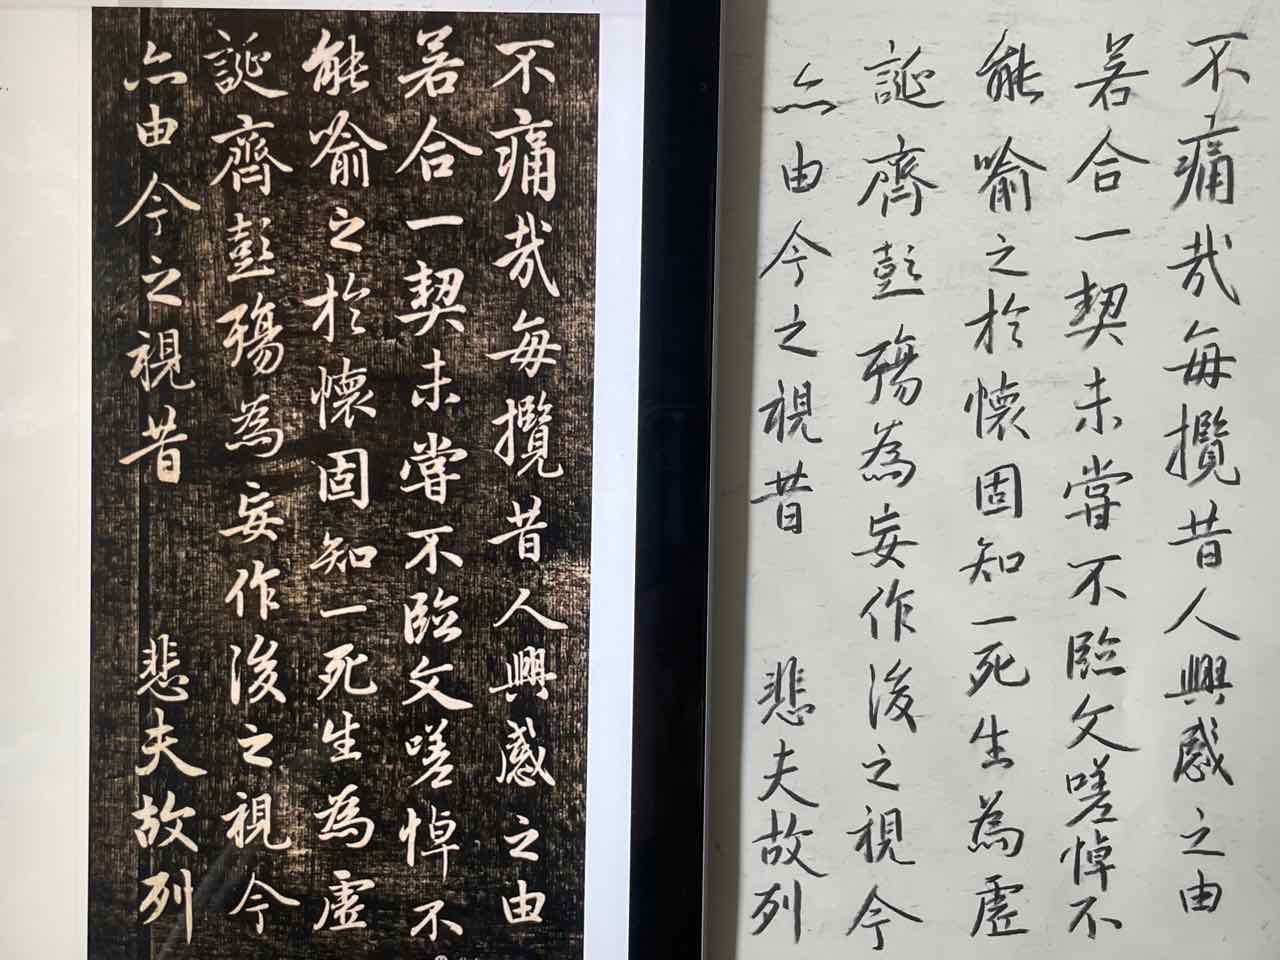 不痛哉每攬昔人興感之由
若合一契未嘗不臨文嗟悼不
能喻之於懷固知一死生為虛
誕齊彭殤為妄作後之視今
亦由今之視昔 悲夫故列
不痛哉每攬昔人興感之由
若合一契未嘗不臨文嗟悼不
能喻之於懷固知一死生為虛
誕齊彭殤為妄作後之視今
亦由今之視昔 悲夫故列